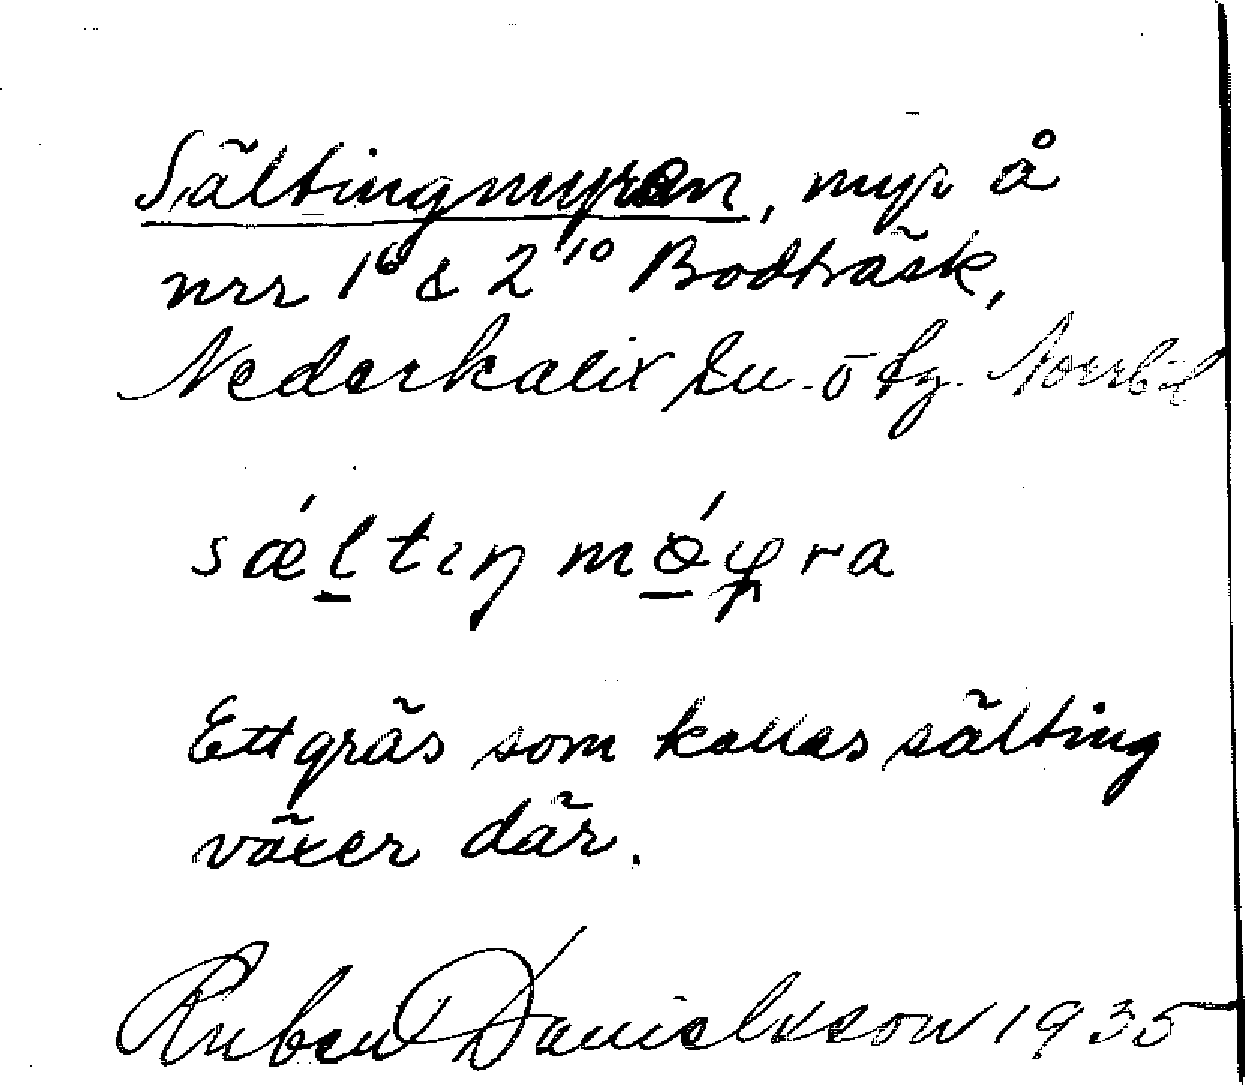 Sältingmyren, myr å
nrr 1⁶ & 2¹⁰ Bodträsk,
Nederkalix sn o tg. Norrb. l
sǽltıŋmǿyra
Ett gräs som kallas sälting
växer där.
Ruben Danielsson 1935